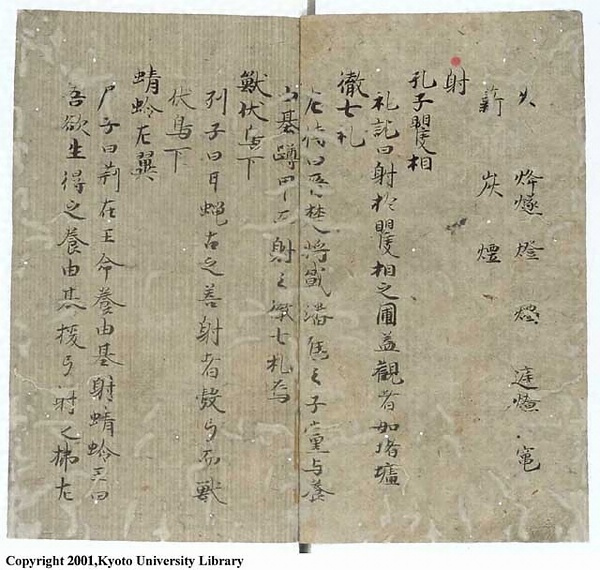 火 烽燧 燈 燭 庭燎 竈
薪 炭 煙
射
孔子矍相
礼記曰射於矍相之圃蓋觀者如堵墻
徹七札
左傳曰晉楚将戦潘尫之子党与養
由基蹲甲而射之徹七札焉
獣伏鳥下
列子曰甘蝿古之善射者彀弓而獣
伏鳥下
蜻蛉左翼
尸子曰荊荘王命養由基射蜻蛉王曰
吾欲生得之養由基援弓射之拂左
Copyright 2001,Kyoto University Library